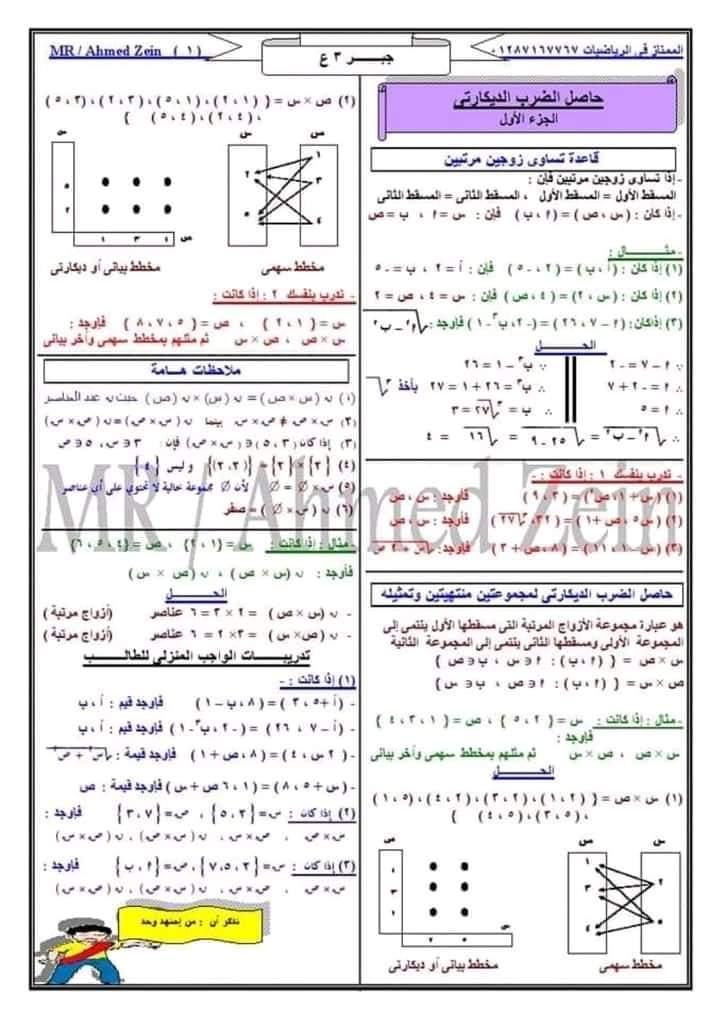 الممتاز فى الرياضيات ٠١٢٨٧١٦٧٧٦٧
جبــر ٣ ع
MR / Ahmed Zein ( ١ )
حاصل الضرب الديكارتى
الجزء الأول
قاعدة تساوى زوجين مرتبين
- إذا تساوى زوجين مرتبين فإن :
المسقط الأول = المسقط الأول ، المسقط الثانى = المسقط الثانى
- إذا كان : ( س ، ص ) = ( أ ، ب ) فإن : س = أ ، ب = ص
- مثــــال :
(١) إذا كان : ( أ ، ب ) = ( ٢ ، - ٥ ) فإن : أ = ٢ ، ب = - ٥
(٢) إذا كان : ( س ، ٢ ) = ( ٤ ، ص ) فإن : س = ٤ ، ص = ٢
(٣) إذاكان : ( أ – ٧ ، ٢٦ ) = ( - ٢، ب٣ - ١ ) فأوجد : √أ٢ – ب٢
الحـــــل
∵ أ – ٧ = - ٢ ∵ ب٣ – ١ = ٢٦
∴ أ = - ٢ + ٧ ∴ ب٣ = ٢٦ + ١ = ٢٧ بأخذ ٣√
∴ أ = ٥ ∴ ب = ٣√٢٧ = ٣
∴ √أ٢ – ب٢ = √٢٥ - ٩ = √١٦ = ٤
- تدرب بنفسك ١ : إذا كانت : -
(١) ( س + ١ ، ص ) = ( ٣ ، ٩ ) فأوجد : س ، ص
(٢) ( س٥ ، ص + ١ ) = ( ٣٢ ، ٣√٢٧ ) فأوجد : س ، ص
(٣) ( س – ١ ، ١١ ) = ( ٨ ، ص + ٣ ) فأوجد: √س + ٢ ص
حاصل الضرب الديكارتى لمجموعتين منتهيتين وتمثيله
هو عبارة مجموعة الأزواج المرتبة التى مسقطها الأول ينتمى إلى
المجموعة الأولى ومسقطها الثانى ينتمى إلى المجموعة الثانية
س × ص = { ( أ ، ب ) : أ ∈ س ، ب ∈ ص }
ص × س = { ( أ ، ب ) : أ ∈ ص ، ب ∈ س }
- مثال : إذا كانت : س = { ٢ ، ٥ } ، ص = { ١ ، ٣ ، ٤ }
فأوجد :
س × ص ، ص × س ثم مثلهم بمخطط سهمى وأخر بيانى
الحـــــل
(١) س × ص = { ( ٢ ، ١ ) ، ( ٢ ، ٣ ) ، ( ٢ ، ٤ ) ، ( ٥ ، ١ )
، ( ٥ ، ٣ ) ، ( ٥ ، ٤ ) }
س ص
١ ٣ ٤
٢ ٥
ص
٤
٣
١
٢ ٥ س
مخطط سهمى مخطط بيانى أو ديكارتى
(٢) ص × س = { ( ١ ، ٢ ) ، ( ١ ، ٥ ) ، ( ٣ ، ٢ ) ، ( ٣ ، ٥ )
، ( ٤ ، ٢ ) ، ( ٤ ، ٥ ) }
س ص
١ ٣ ٤
٢ ٥
س
٥
٢
١ ٣ ٤ ص
مخطط سهمى مخطط بيانى أو ديكارتى
- تدرب بنفسك ٢ : إذا كانت :
س = { ١ ، ٢ } ، ص = { ٥ ، ٧ ، ٨ } فأوجد :
س × ص ، ص × س ثم مثلهم بمخطط سهمى وأخر بيانى
ملاحظات هــامة
(١) ن ( س × ص ) = ن ( س ) × ن ( ص ) حيث ن عدد العناصر
(٢) س × ص ≠ ص × س بينما ن ( س × ص ) = ن ( ص × س )
(٣) إذا كان ( ٣ ، ٥ ) ∈ ( س × ص ) فإن : ٣ ∈ س ، ٥ ∈ ص
(٤) {٢} × {٢} = { ( ٢، ٢ ) } وليس { ٤ }
(٥) س × ∅ = ∅ ، ∅ مجموعة خالية لا تحتوي على أي عناصر
(٦) ن ( س × ∅ ) = صفر
- مثال : إذا كانت : س = { ١ ، ٢ } ، ص = { ٤ ، ٥ ، ٦ }
فأوجد : ن ( س × ص ) ، ن ( ص × س )
الحـــــل
- ن ( س × ص ) = ٢ × ٣ = ٦ عناصر ( أزواج مرتبة )
- ن ( ص × س ) = ٣ × ٢ = ٦ عناصر ( أزواج مرتبة )
تدريبــات الواجب المنزلى للطالــب
(١) إذا كانت : -
- ( أ + ٥ ، ٣ ) = ( ٨ ، ب – ١ ) فأوجد قيم : أ ، ب
- ( أ – ٧ ، ٢٦ ) = ( - ٢ ، ب٣ - ١ ) فأوجد قيم : أ ، ب
- ( ٢ س ، ٤ ) = ( ٨ ، ص + ١ ) فأوجد قيمة : √س٢ + ص٢
- ( س + ٥ ، ٨ ) = ( ١ ، ٦ ص + س ) فأوجد قيمة : ص
(٢) إذا كان : س = { ٣ ، ٥ } ، ص = { ٣ ، ٧ } فأوجد :
س × ص ، ص × س ، ن ( س × ص ) ، ن ( ص × س )
(٣) إذا كان : س = { ٢ ، ٥ ، ٧ } ، ص = { أ ، ب } فأوجد :
س × ص ، ص × س ، ن ( س × ص ) ، ن ( ص × س )
تذكر أن : من إجتهد وجد
MR / Ahmed Zein